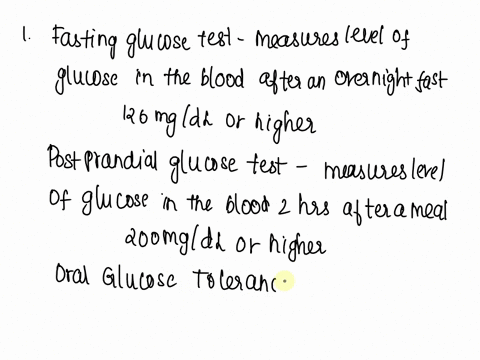 1. Fasting glucose test - measures level of
glucose in the blood after an overnight fast
126 mg/dL or higher
Postprandial glucose test - measures level
Of glucose in the blood 2 hrs after a meal
200mg/dL or higher
Oral Glucose Toleranc